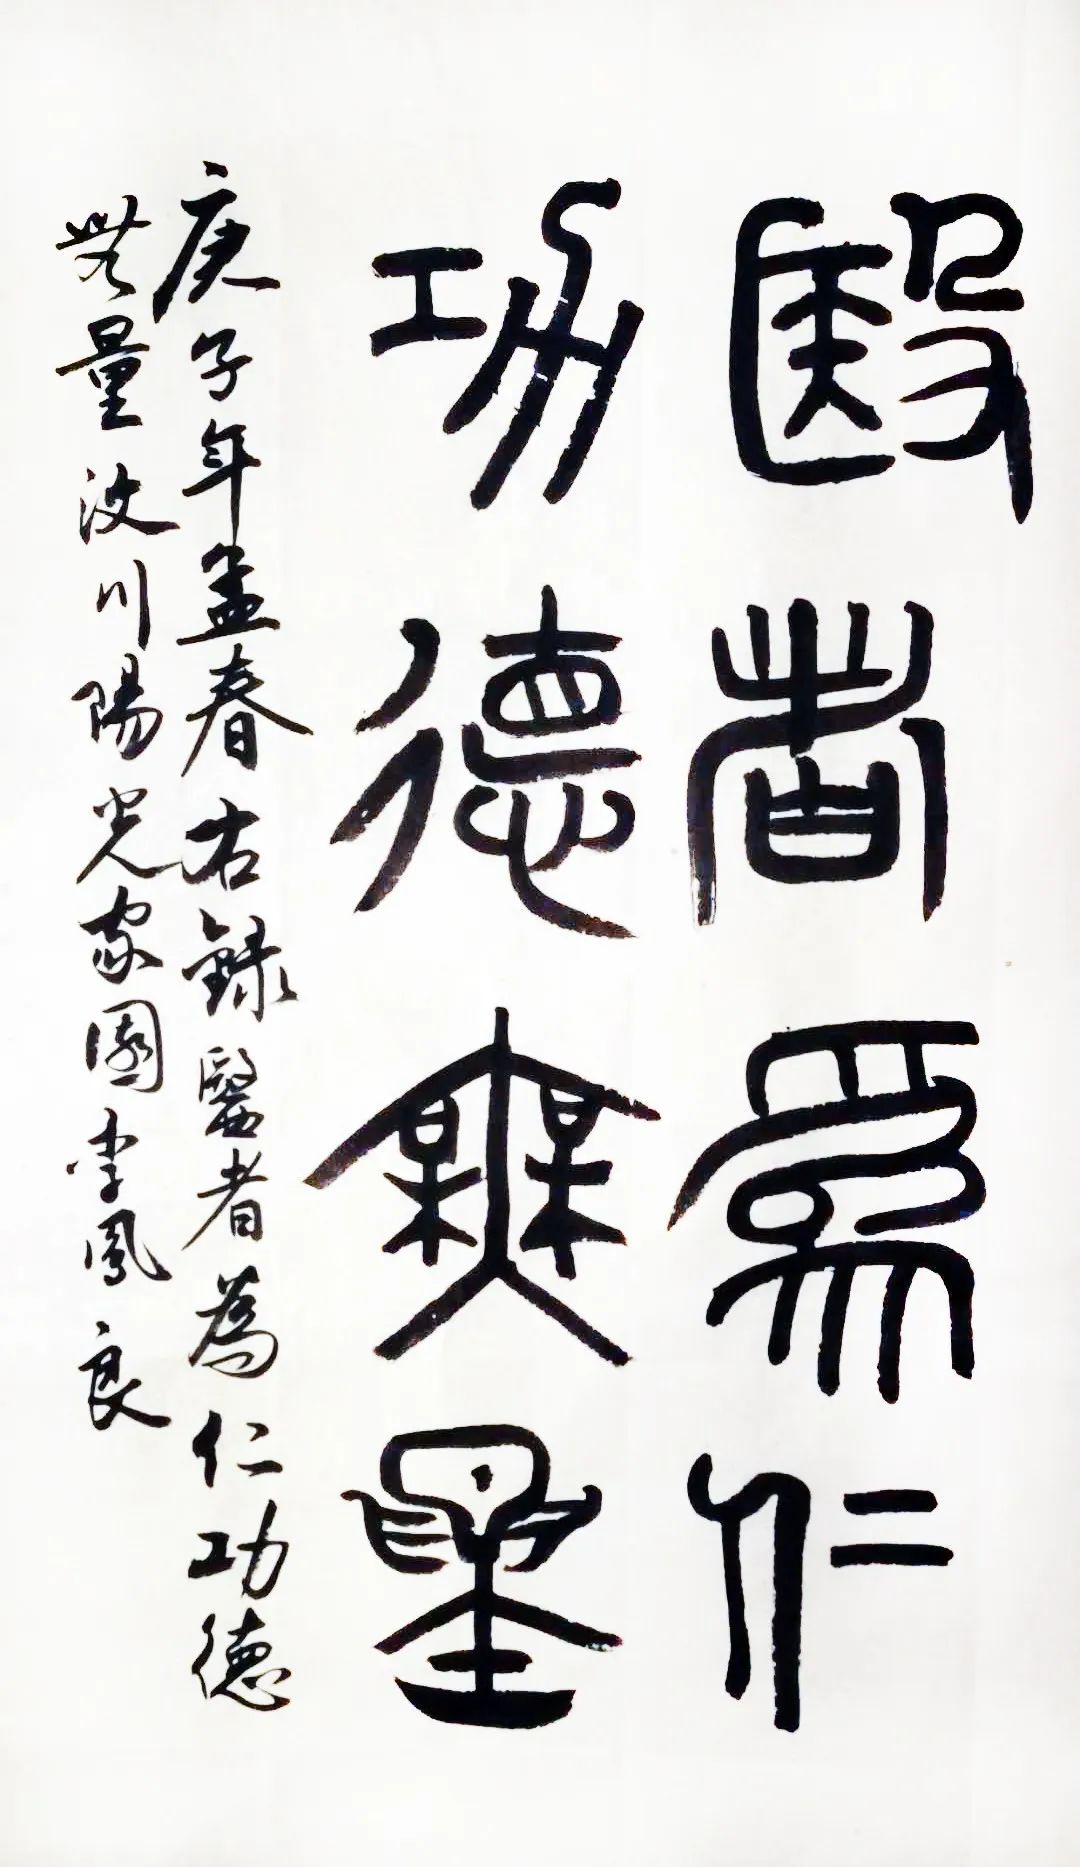 醫者爲仁
功德無量
庚子年孟春右録醫者為仁功德
無量汶川陽光家園李鳳良